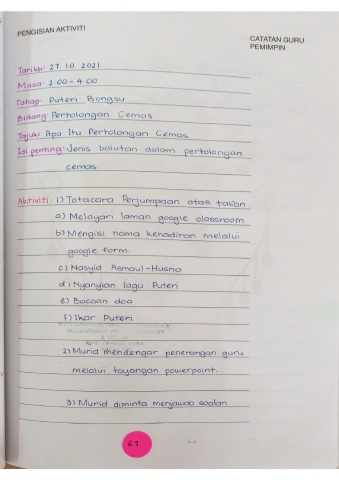 PENGISIAN AKTIVITI
CATATAN GURU
PEMIMPIN
Tarikh: 27.10.2021
Masa: 2.00 - 4.00
Tahap: Puteri Bongsu
Bidang: Pertolongan Cemas
Tajuk: Apa Itu Pertolongan Cemas
Isi penting: Jenis balutan dalam pertolongan
cemas
Aktiviti: 1) Tatacara Perjumpaan atas talian
a) Melayari laman google classroom.
b) Mengisi nama kehadiran melalui
google form.
c) Nasyid Asmaul-Husna
d) Nyanyian lagu Puteri
e) Bacaan doa
f) Ikar Puteri
2) Murid mendengar penerangan guru
melalui tayangan powerpoint.
3) Murid diminta menjawab soalan
67